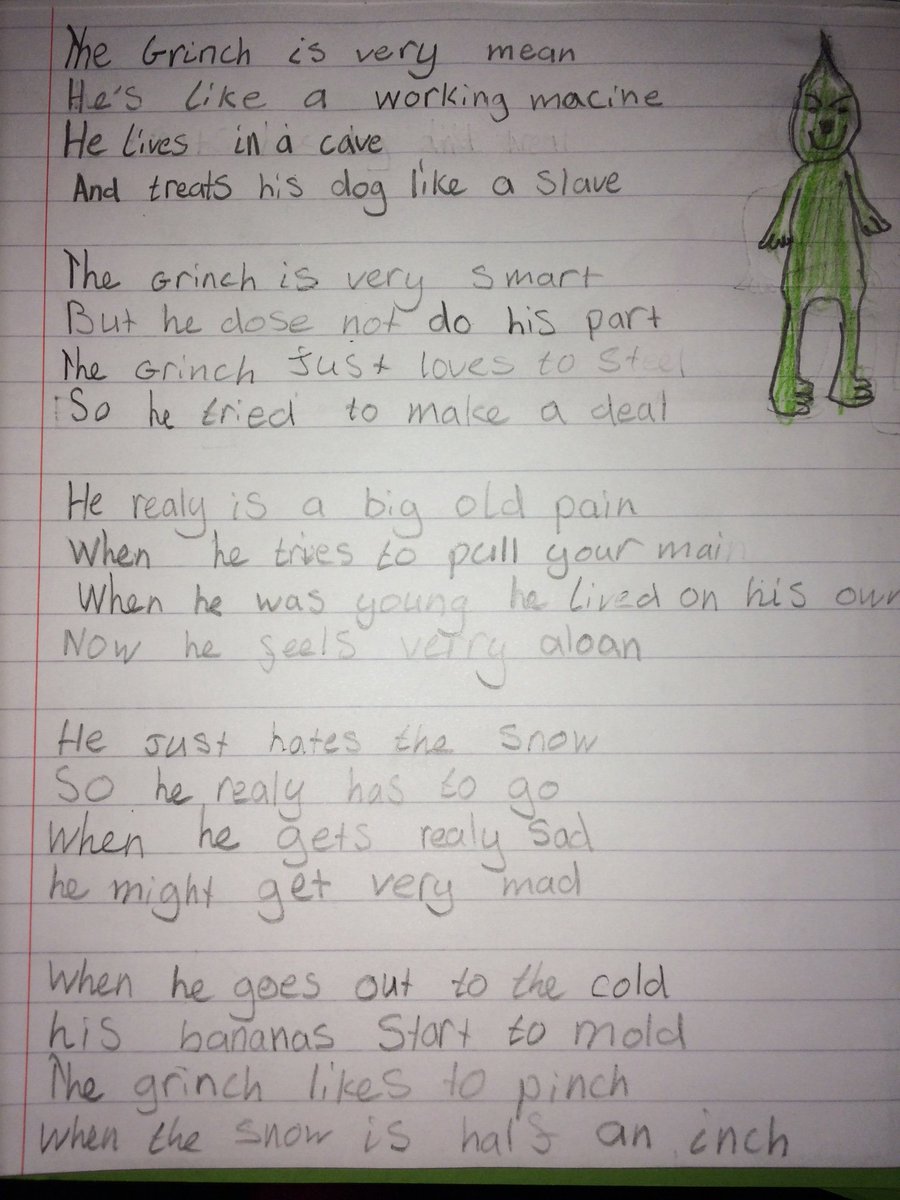 The Grinch is very mean
He's like a working macine
He lives in a cave
And treats his dog like a slave
The Grinch is very smart
But he dose not do his part
The Grinch just loves to steel
So he tried to make a deal
He realy is a big old pain
When he tries to pull your main
When he was young he lived on his own
Now he feels verry aloan
He just hates the snow
So he realy has to go
When he gets realy sad
he might get very mad
When he goes out to the cold
his bananas start to mold
The grinch likes to pinch
when the snow is half an inch